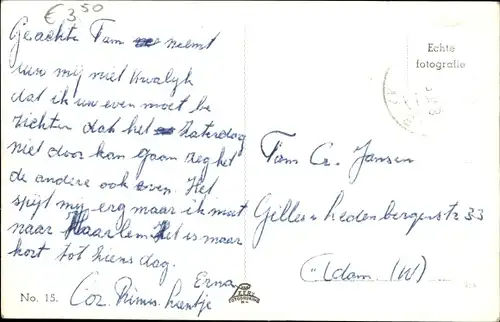 € 3,50
Geachte Fam neemt
uw mij niet kwalijk
dat ik uw even moet be
richten dat het Zaterdag
niet door kan gaan zeg het
de andere ook even. Het
spijt mij erg maar ik moet
naar Haarlem. Het is maar
kort tot ziens dag.
Erna
Cor. Rinus. Hantje
No. 15.
Echte
fotografie
Fam Cr. Jansen
Gilles v Ledenbergerstr 33
A'dam. (W)